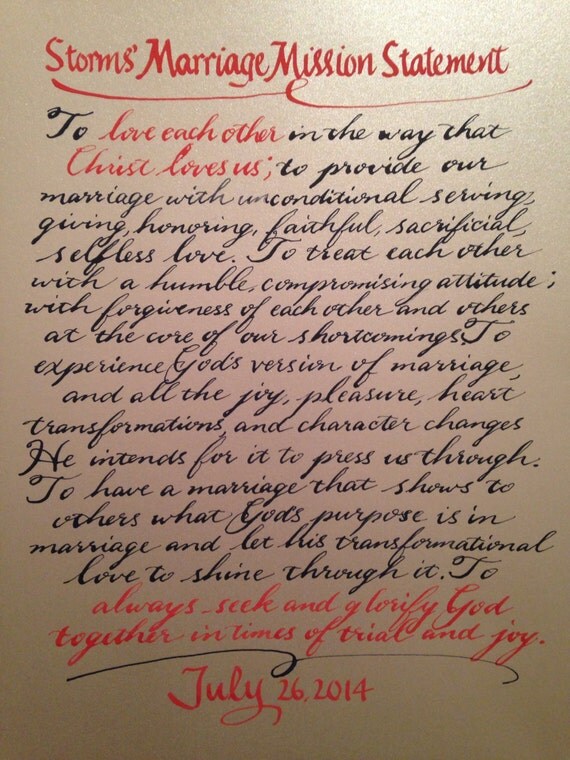 Storms' Marriage Mission Statement
To love each other in the way that
Christ loves us; to provide our
marriage with unconditional serving,
giving, honoring, faithful, sacrificial,
selfless love. To treat each other
with a humble, compromising attitude;
with forgiveness of each other and others
at the core of our shortcomings. To
experience God's version of marriage,
and all the joy, pleasure, heart
transformations, and character changes
He intends for it to press us through.
To have a marriage that shows to
others what God's purpose is in
marriage and let his transformational
love to shine through it. To
always seek and glorify God
together in times of trial and joy.
July 26, 2014